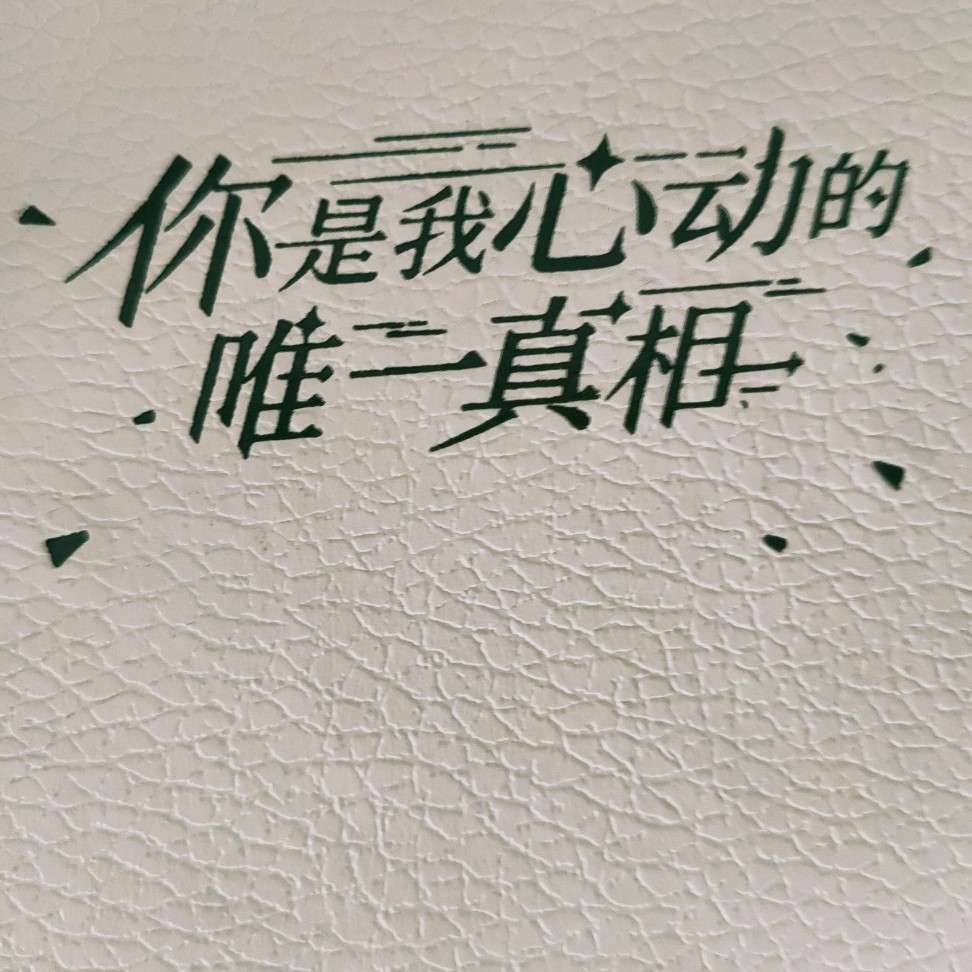 你是我心动的
唯一真相